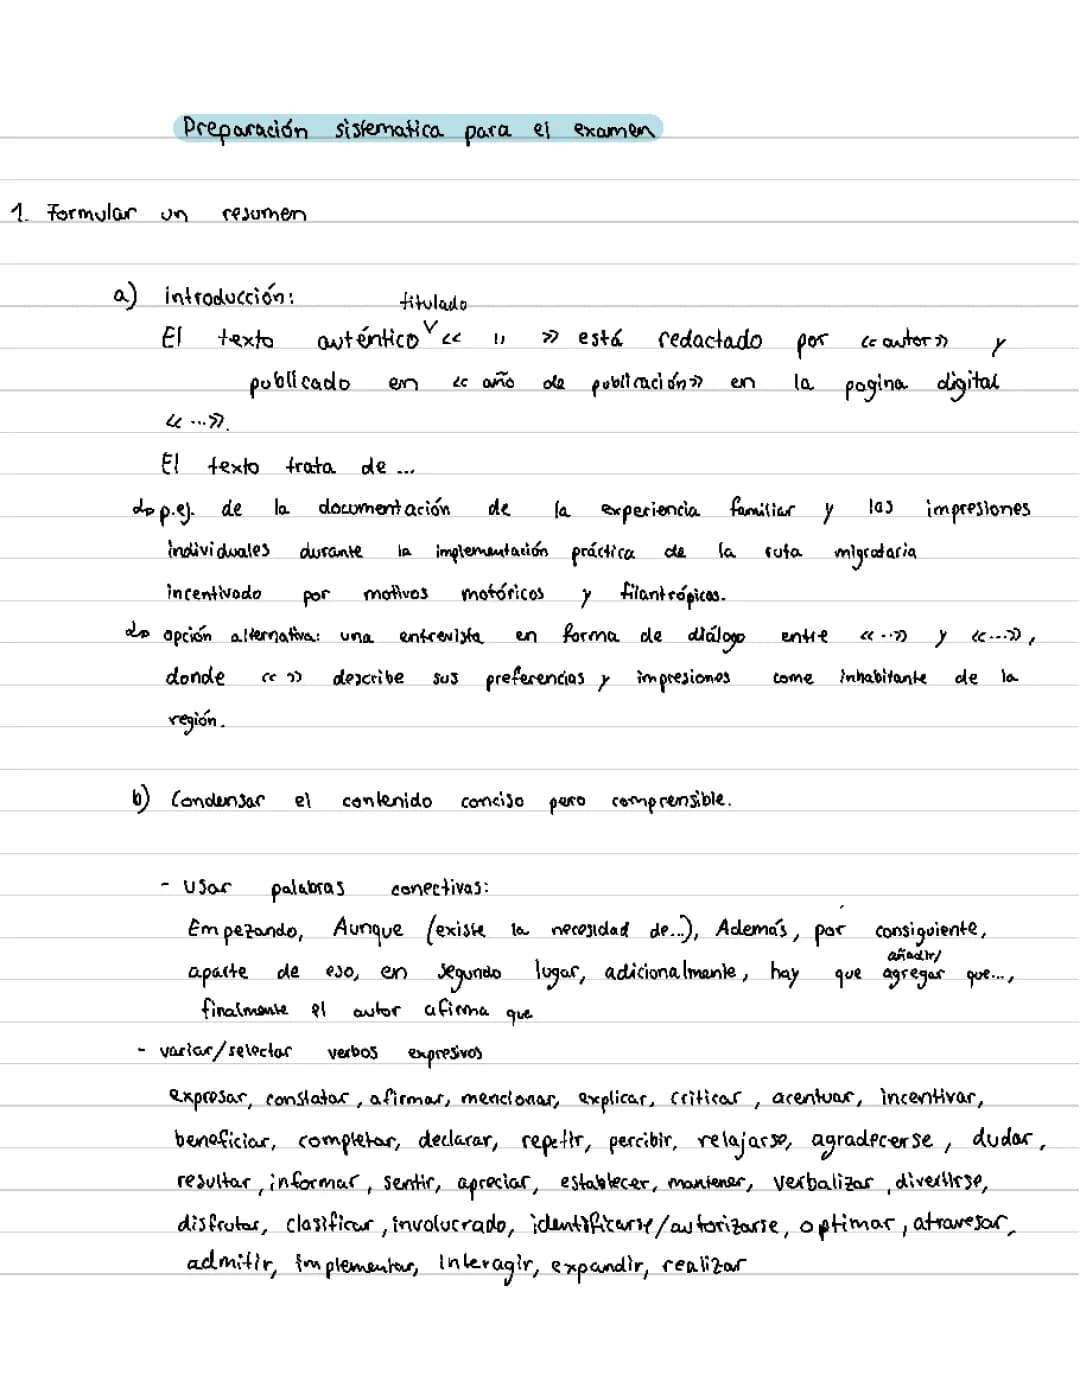 Preparación sistematica para el examen
1. Formular un resumen
a) introducción:
titulado
El texto auténtico ˅ « ,, » está redactado por «autor» y
publicado en « año de publicación» en la pagina digital
« ...».
El texto trata de ...
↳ p.ej. de la documentación de la experiencia familiar y las impresiones
individuales durante la implementación práctica de la ruta migrataria
incentivado por motivos motóricos y filantrópicos.
↳ opción alternativa: una entrevista en forma de diálogo entre «...» y «...»,
donde « » describe sus preferencias y impresiones come inhabitante de la
región.
b) Condensar el contenido conciso pero comprensible.
- Usar palabras conectivas:
Empezando, Aunque (existe la necesidad de...), Además, por consiguiente,
añadir/
aparte de eso, en segundo lugar, adicionalmente, hay que agregar que...,
finalmente el autor afirma que
- variar/selectar verbos expresivos
expresar, constatar, afirmar, mencionar, explicar, criticar, acentuar, incentivar,
beneficiar, completar, declarar, repetir, percibir, relajarse, agradecerse, dudar,
resultar, informar, sentir, apreciar, establecer, mantener, verbalizar, divertirse,
disfrutar, clasificar, involucrado, identificarse/autorizarse, optimar, atravesar,
admitir, implementar, interagir, expandir, realizar